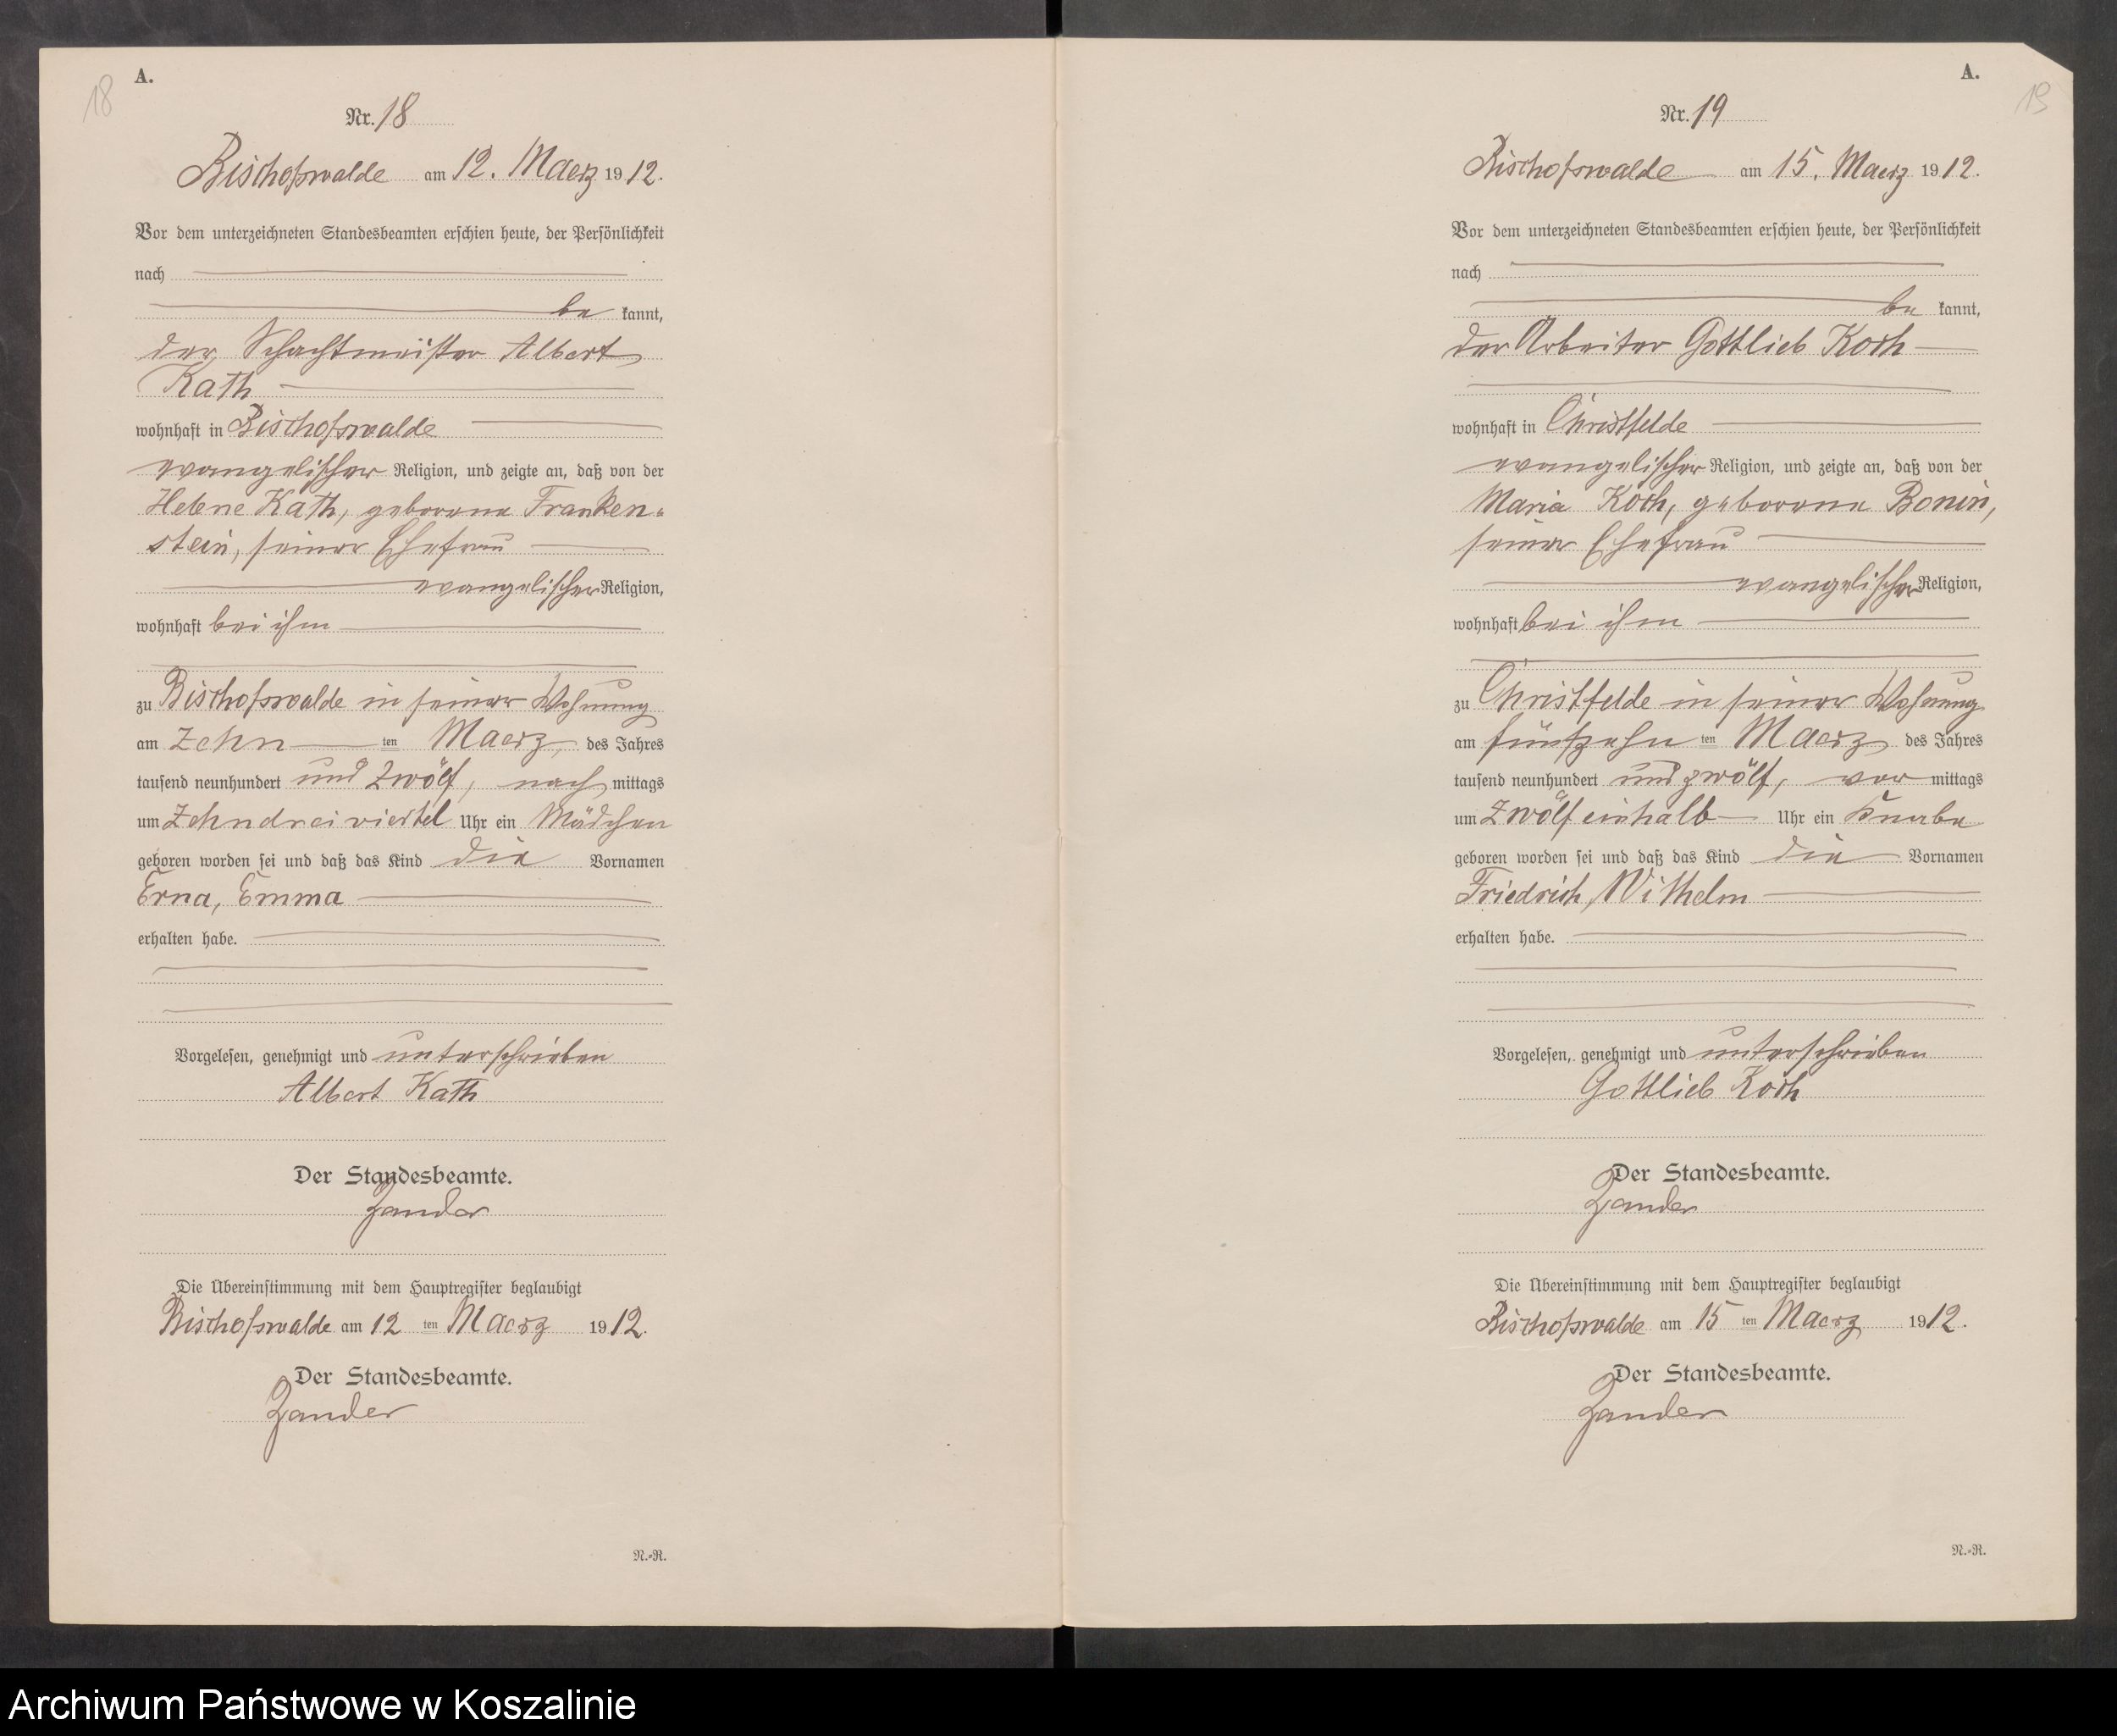 18
A.
Nr. 18
Bischofswalde am 12. Maerz 1912.
Vor dem unterzeichneten Standesbeamten erschien heute, der Persönlichkeit
nach
be kannt,
der Schachtmeister Albert
Kath
wohnhaft in Bischofswalde
evangelischer Religion, und zeigte an, daß von der
Helene Kath, geborene Franken-
stein, seiner Ehefrau
evangelischer Religion,
wohnhaft bei ihm
zu Bischofswalde in seiner Wohnung
am zehn ten Maerz, des Jahres
tausend neunhundert und zwölf, nach mittags
um zehndreiviertel Uhr ein Mädchen
geboren worden sei und daß das Kind die Vornamen
Erna, Emma
erhalten habe.
Vorgelesen, genehmigt und unterschrieben
Albert Kath
Der Standesbeamte.
Zander
Die Übereinstimmung mit dem Hauptregister beglaubigt
Bischofswalde am 12 ten Maerz 1912.
Der Standesbeamte.
Zander
N.-R.
A.
19
Nr. 19
Bischofswalde am 15. Maerz 1912.
Vor dem unterzeichneten Standesbeamten erschien heute, der Persönlichkeit
nach
be kannt,
der Arbeiter Gottlieb Koch
wohnhaft in Christfelde
evangelischer Religion, und zeigte an, daß von der
Maria Koch, geborene Bonin,
seiner Ehefrau
evangelischer Religion,
wohnhaft bei ihm
zu Christfelde in seiner Wohnung
am fünfzehn ten Maerz des Jahres
tausend neunhundert und zwölf, vor mittags
um zwölfeinhalb Uhr ein Knabe
geboren worden sei und daß das Kind die Vornamen
Friedrich, Wilhelm
erhalten habe.
Vorgelesen, genehmigt und unterschrieben
Gottlieb Koch
Der Standesbeamte.
Zander
Die Übereinstimmung mit dem Hauptregister beglaubigt
Bischofswalde am 15 ten Maerz 1912.
Der Standesbeamte.
Zander
N.-R.
Archiwum Państwowe w Koszalinie